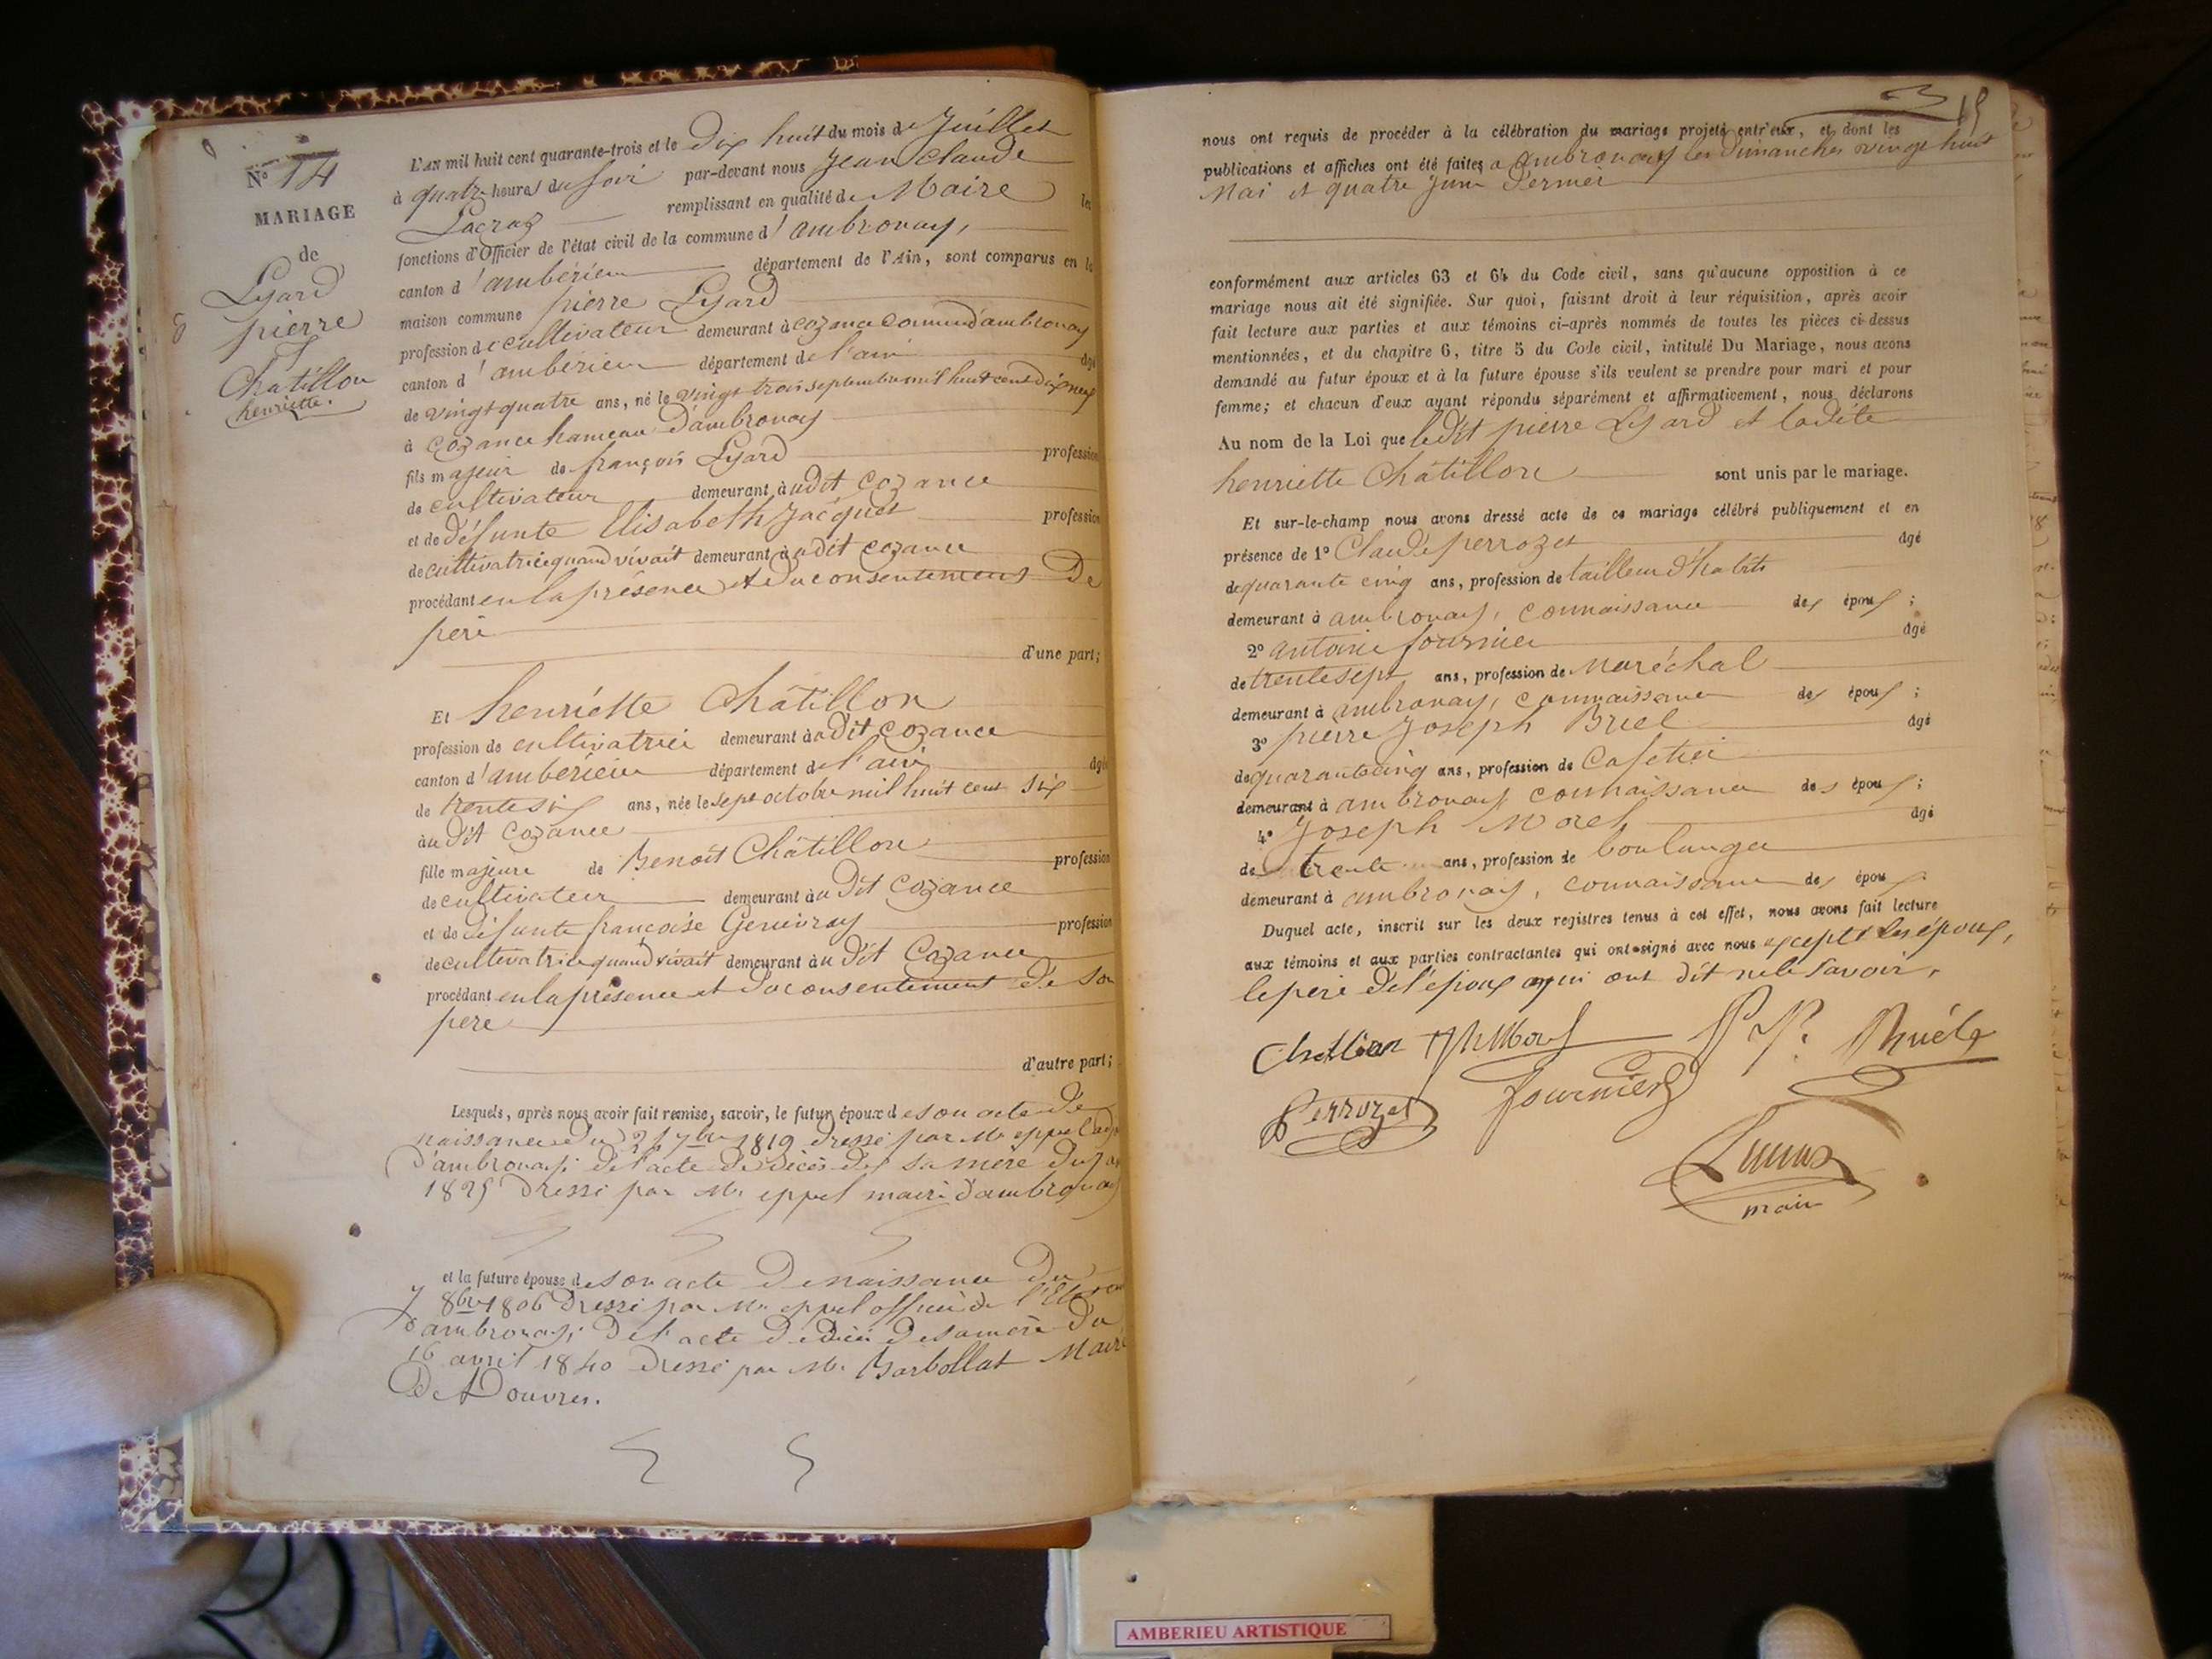 N° 14
MARIAGE
de
Lyard
pierre
&
Chatillon
henriette.
L'AN mil huit cent quarante-trois et le Dix huit du mois de Juillet
à quatre heures du soir par-devant nous Jean Claude
remplissant en qualité de Maire les
fonctions d'Officier de l'état civil de la commune d'ambronay,
canton d'ambérieu département de l'Ain, sont comparus en la
maison commune pierre Lyard
profession de cultivateur demeurant à cozance commune d'ambronay
canton d'ambérieu département de l'ain âgé
de vingt quatre ans, né le vingt trois septembre mil huit cent dix neuf
à cozance hameau d'ambronay
fils majeur de françois Lyard profession
de cultivateur demeurant à udit cozance
et de défunte Elisabeth Jacquet profession
de cultivatrice quand vivait demeurant à udit cozance
procédant en la présence et du consentement de
père
d'une part;
Et henriette Châtillon
profession de cultivatrice demeurant à udit cozance
canton d'ambérieu département de l'ain âgé
de trente six ans, née le sept octobre mil huit cent six
àu dit cozance
fille majeure de Benoit Châtillon profession
de cultivateur demeurant àu dit cozance
et de défunte françoise profession
de cultivatrice quand vivait demeurant àu dit Cozance
procédant en la présence et du consentement de son
père
d'autre part;
Lesquels, après nous avoir fait remise, savoir, le futur époux de son acte de
naissance du 1819 dressé par Mr eppel
d'ambronay; de l'acte de décès de sa mère du
dressé par Mr eppel maire d'ambronay
et la future épouse de son acte de naissance du
7 8bre 1806 dressé par Mr eppel officier de
d'ambronay; de l'acte de décès de sa mère du
16 avril 1840 dressé par Mr Barbollat Maire
De Douvres.
nous ont requis de procéder à la célébration du mariage projeté entr'eux, et dont les
publications et affiches ont été faites a ambronay les dimanches vingt huit
Mai et quatre Juin dernier
conformément aux articles 63 et 64 du Code civil, sans qu'aucune opposition à ce
mariage nous ait été signifiée. Sur quoi, faisant droit à leur réquisition, après avoir
fait lecture aux parties et aux témoins ci-après nommés de toutes les pièces ci-dessus
mentionnées, et du chapitre 6, titre 5 du Code civil, intitulé Du Mariage, nous avons
demandé au futur époux et à la future épouse s'ils veulent se prendre pour mari et pour
femme; et chacun d'eux ayant répondu séparément et affirmativement, nous déclarons
Au nom de la Loi que ledit pierre Lyard et ladite
henriette Châtillon sont unis par le mariage.
Et sur-le-champ nous avons dressé acte de ce mariage célébré publiquement et en
présence de 1° Claude perrozet âgé
de quarante cinq ans, profession de tailleur d'habits
demeurant à ambronay, connaissance des époux;
2° antoine fournier âgé
de trente sept ans, profession de Maréchal
demeurant à ambronay, connaissance des époux;
3° pierre Joseph Bruel âgé
de quarante cinq ans, profession de Cafetier
demeurant à ambronay connaissance des époux;
4° Joseph Morel âgé
de trente ans, profession de boulanger
demeurant à ambronay, connaissance des époux
Duquel acte, inscrit sur les deux registres tenus à cet effet, nous avons fait lecture
aux témoins et aux parties contractantes qui ont signé avec nous excepté les époux,
le père de l'époux qui ont dit ne le savoir.
Chatillon
Perrozet
fournier
maire
AMBERIEU ARTISTIQUE